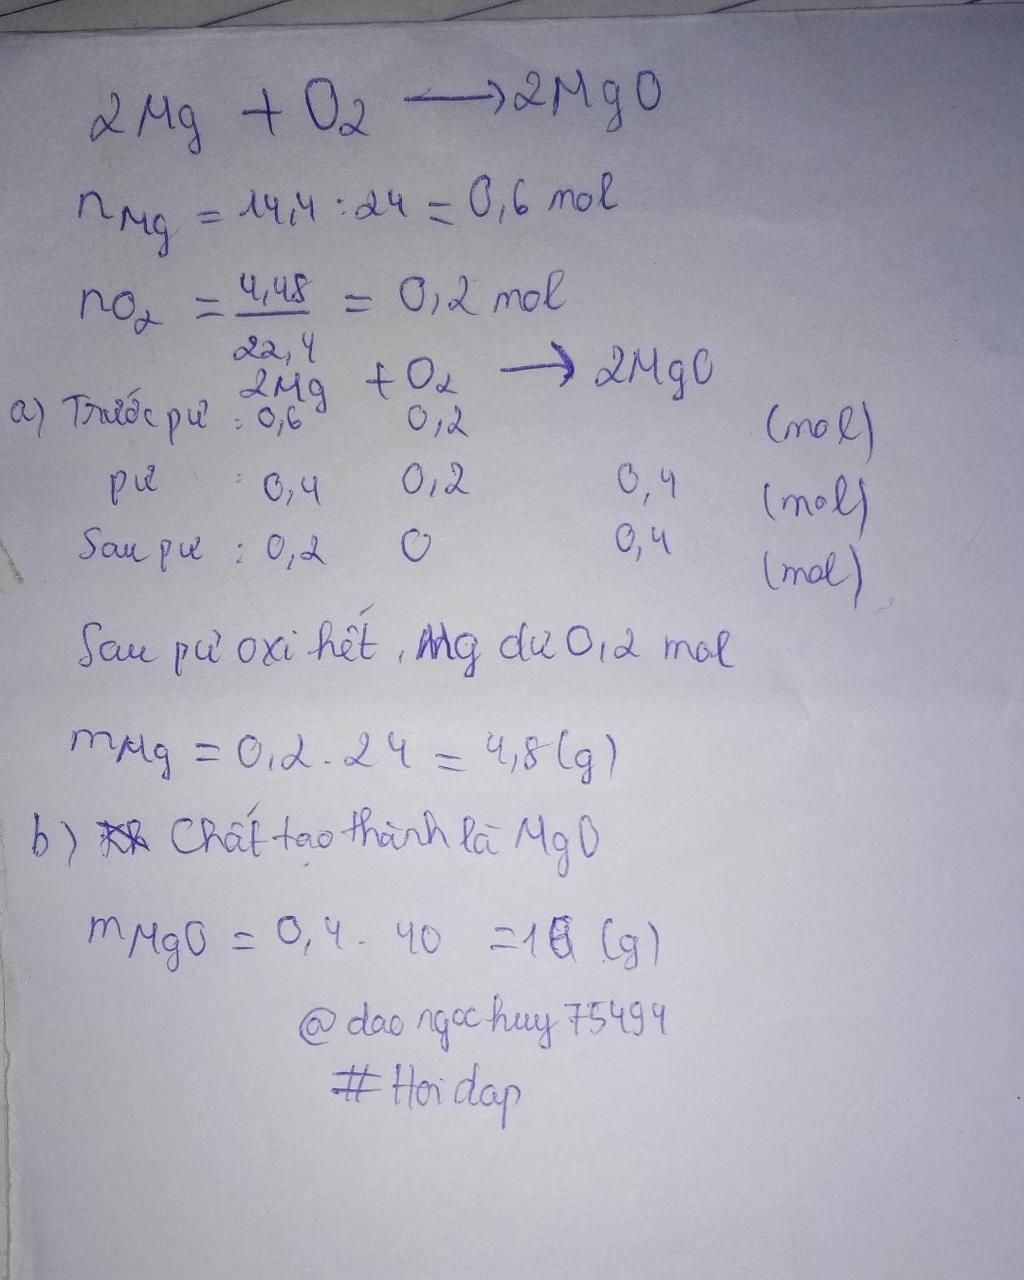 2Mg + O2 → 2MgO
nMg = 14,4 : 24 = 0,6 mol
nO2 = 4,48 / 22,4 = 0,2 mol
2Mg + O2 → 2MgO
a) Trước pư : 0,6 0,2 (mol)
pư : 0,4 0,2 0,4 (mol)
Sau pư : 0,2 0 0,4 (mol)
Sau pư oxi hết, Mg dư 0,2 mol
mMg = 0,2 . 24 = 4,8 (g)
b) Chất tạo thành là MgO
mMgO = 0,4 . 40 = 16 (g)
@daongochuy75494
#Hoidap